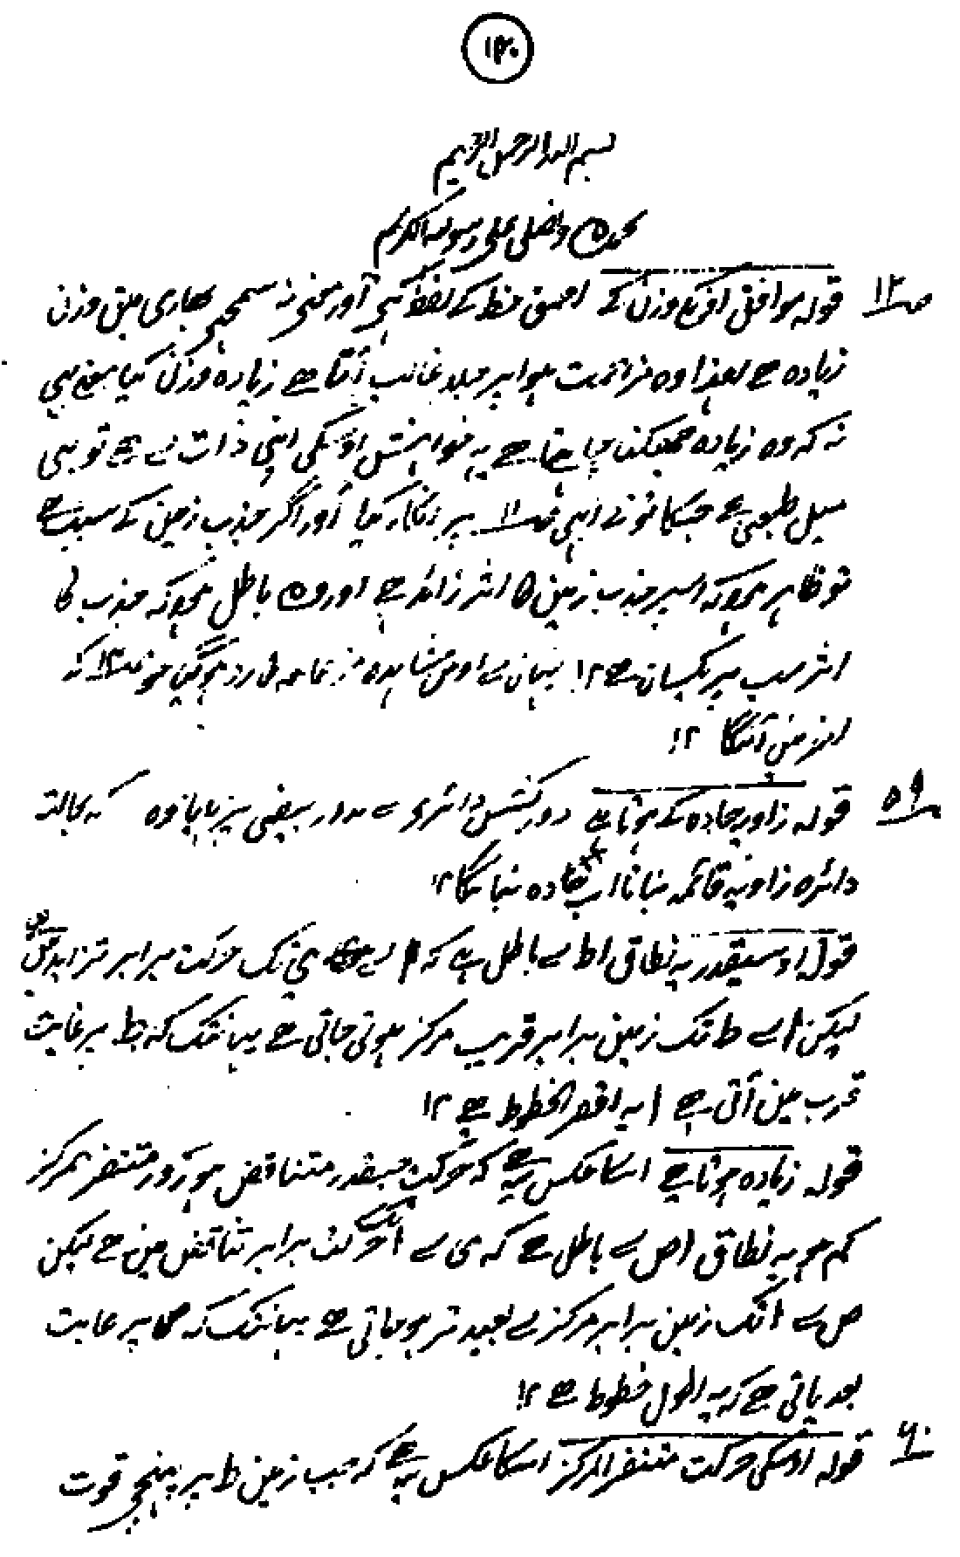 ۱۴۰
بسم اللہ الرحمن الرحیم
نحمدہ ونصلی علی رسولہ الکریم
ص۱۲ قولہ موافق اونکے وزن کے احمق خط کے لفظ کہے اور معنی نہ سمجھے بھاری مین وزن
زیادہ ہے لہذا وہ مزاحمت ہوا پر جلد غالب آتا ہے زیادہ وزن کیا معنی یہی
نہ کہ وہ زیادہ جھکنا چاہتا ہے یہ خواہش اوسکی اپنی ذات سے ہے تو یہی
میل طبعی ہے جسکا تو نے ابھی ص۱۱ پر انکار کیا اور اگر جذب زمین کے سبب ہے
تو ظاہر ہوا کہ اسپر جذب زمین کا اثر زائد ہے اور وہ باطل ہوا کہ جذب کا
اثر سب پر یکساں ہے ۱۲ یہاں سے اوس مشاہدہ مزعومہ کی رد ہوگئی جو ص۱۴ کے
اخر مین آئیگا ۱۲
ص۵۹ قولہ زاویہ حادہ کے ہوتا ہے دور کنش دائری سے مدار بیضی پر بنایا وہ کہ بحالت
دائرہ زاویہ قائمہ بناتا اب حادہ بنائیگا ۱۲
قولہ اوسیقدر یہ نطاق اط سے باطل ہے کہ ا سے ی تک حرکت برابر تزاید مین ہے
لیکن ا سے ط تک زمین برابر قریب مرکز ہوتی جاتی ہے یہانتک کہ ط پر غایت
قرب مین آتی ہے ا یہ اقصر الخطوط ہے ۱۲
قولہ زیادہ ہوتا ہے اسکا عکس یہ ہے کہ حرکت جسقدر متناقص ہو زور متنفر مرکز
کم ہو یہ نطاق ا ص سے باطل ہے کہ ی سے ا تک حرکت برابر تناقص مین ہے لیکن
ص سے ا تک زمین برابر مرکز سے بعید تر ہو جاتی ہے یہانتک کہ پر غایت
بعد پاتی ہے کہ یہ اطول خطوط ہے ۱۲
ص۶۰ قولہ اوسکی حرکت متنفر المرکز اسکا عکس یہ ہے کہ جب زمین ط پر پہنچے قوت